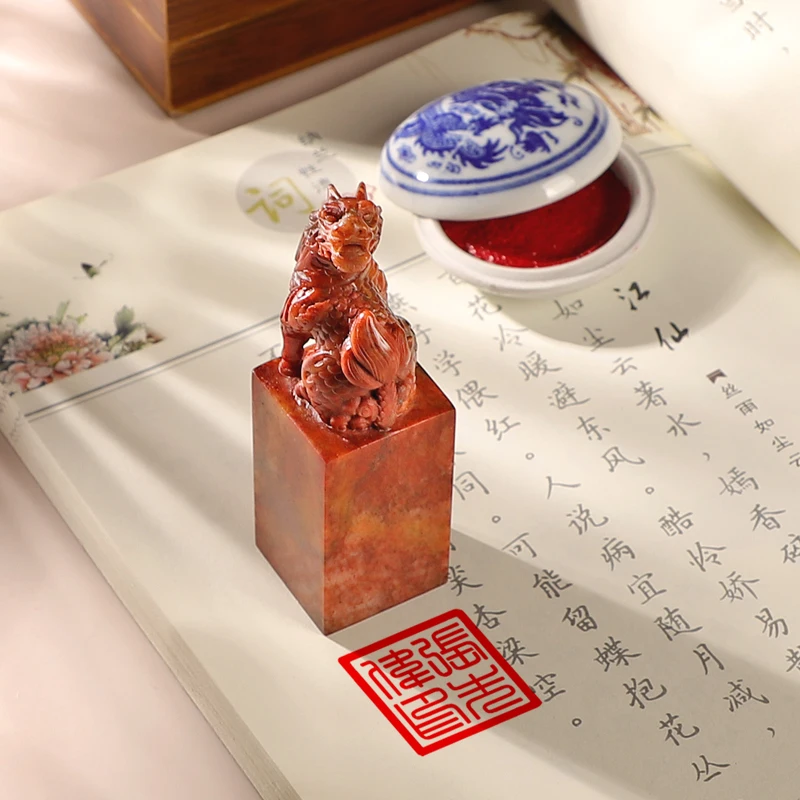 词
江仙
丝雨如尘云
如尘云著水，嫣香碎
花冷暖避东风。酷怜娇易
子学偎红。人说病宜随月减，
同。可能留蝶抱花丛
笑杏梁空。
張先
偉印